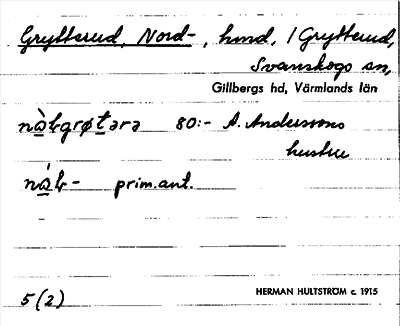 Grytterud, Nord-, hmd. / Grytterud,
Svanskogs sn,
Gillbergs hd, Värmlands län
nàkgrøtərə 80:- A. Anderssons
hustru
nák- prim.ant.
5(2)
HERMAN HULTSTRÖM c. 1915